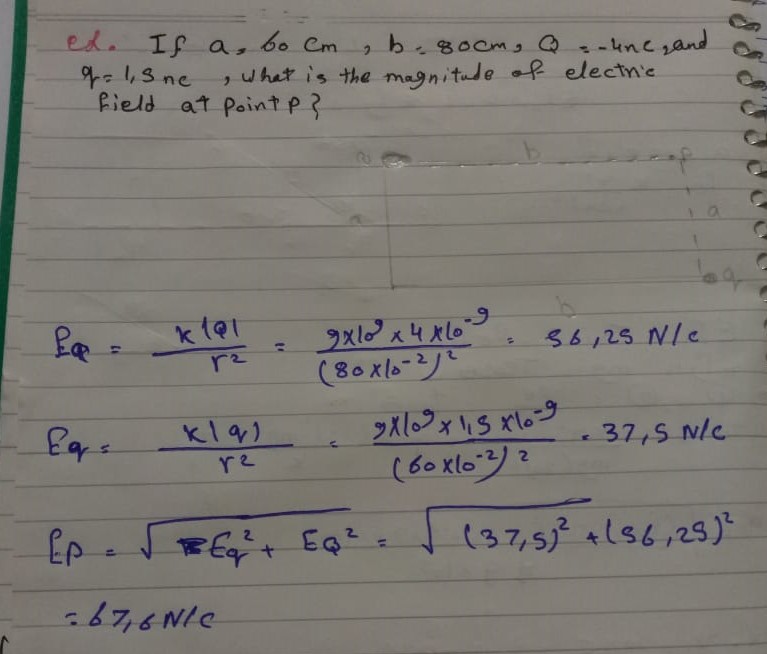 ex. If a = 60 cm , b = 80cm, Q = -4nc, and
q = 1,5 nc , what is the magnitude of electric
field at point P ?
b P
a
q
b
EQ = k|Q| / r2 = 9x10^9 x 4 x10^-9 / (80x10^-2)^2 = 56,25 N/c
Eq = k|q| / r2 = 9x10^9 x 1,5 x10^-9 / (60x10^-2)^2 = 37,5 N/C
Ep = √ Eq^2 + EQ^2 = √ (37,5)^2 + (56,25)^2
= 67,6 N/C